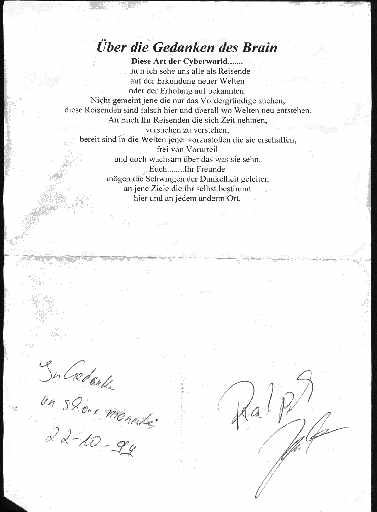 Über die Gedanken des Brain
Diese Art der Cyberworld.......
nun ich sehe uns alle als Reisende
auf der Erkundung neuer Welten
oder der Erholung auf bekannten.
Nicht gemeint jene die nur das Vordergründige suchen,
diese Reisenden sind falsch hier und überall wo Welten neu entstehen.
An euch Ihr Reisenden die sich Zeit nehmen,
verstehen zu verstehen,
bereit sind in die Welten jener vorzustoßen die sie erschaffen,
frei von Vorurteil
und doch wachsam über das was sie sehn.
Euch........Ihr Freunde
mögen die Schwingen der Dunkelheit geleiten
an jene Ziele die ihr selbst bestimmt
hier und an jedem anderm Ort.
In Gedanken
22-10-94
Ralph